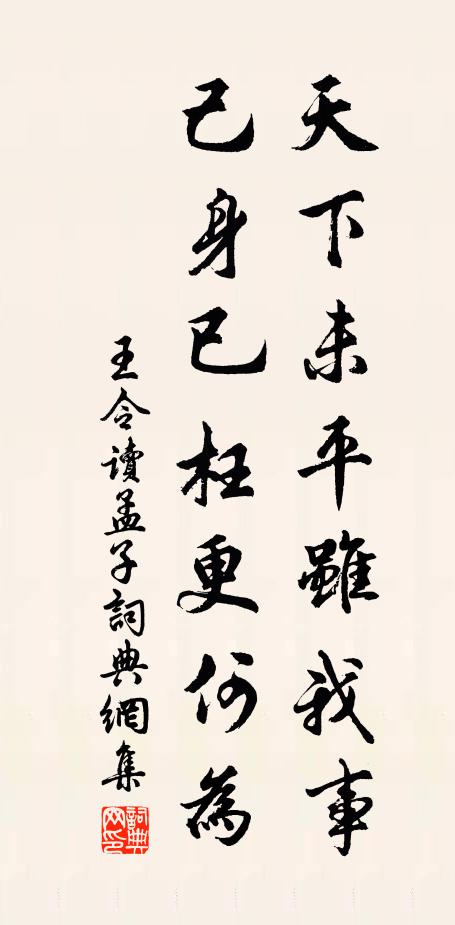 天下未平雖我事
己身已枉更何為
王令讀孟子詞典網集
詞典網印